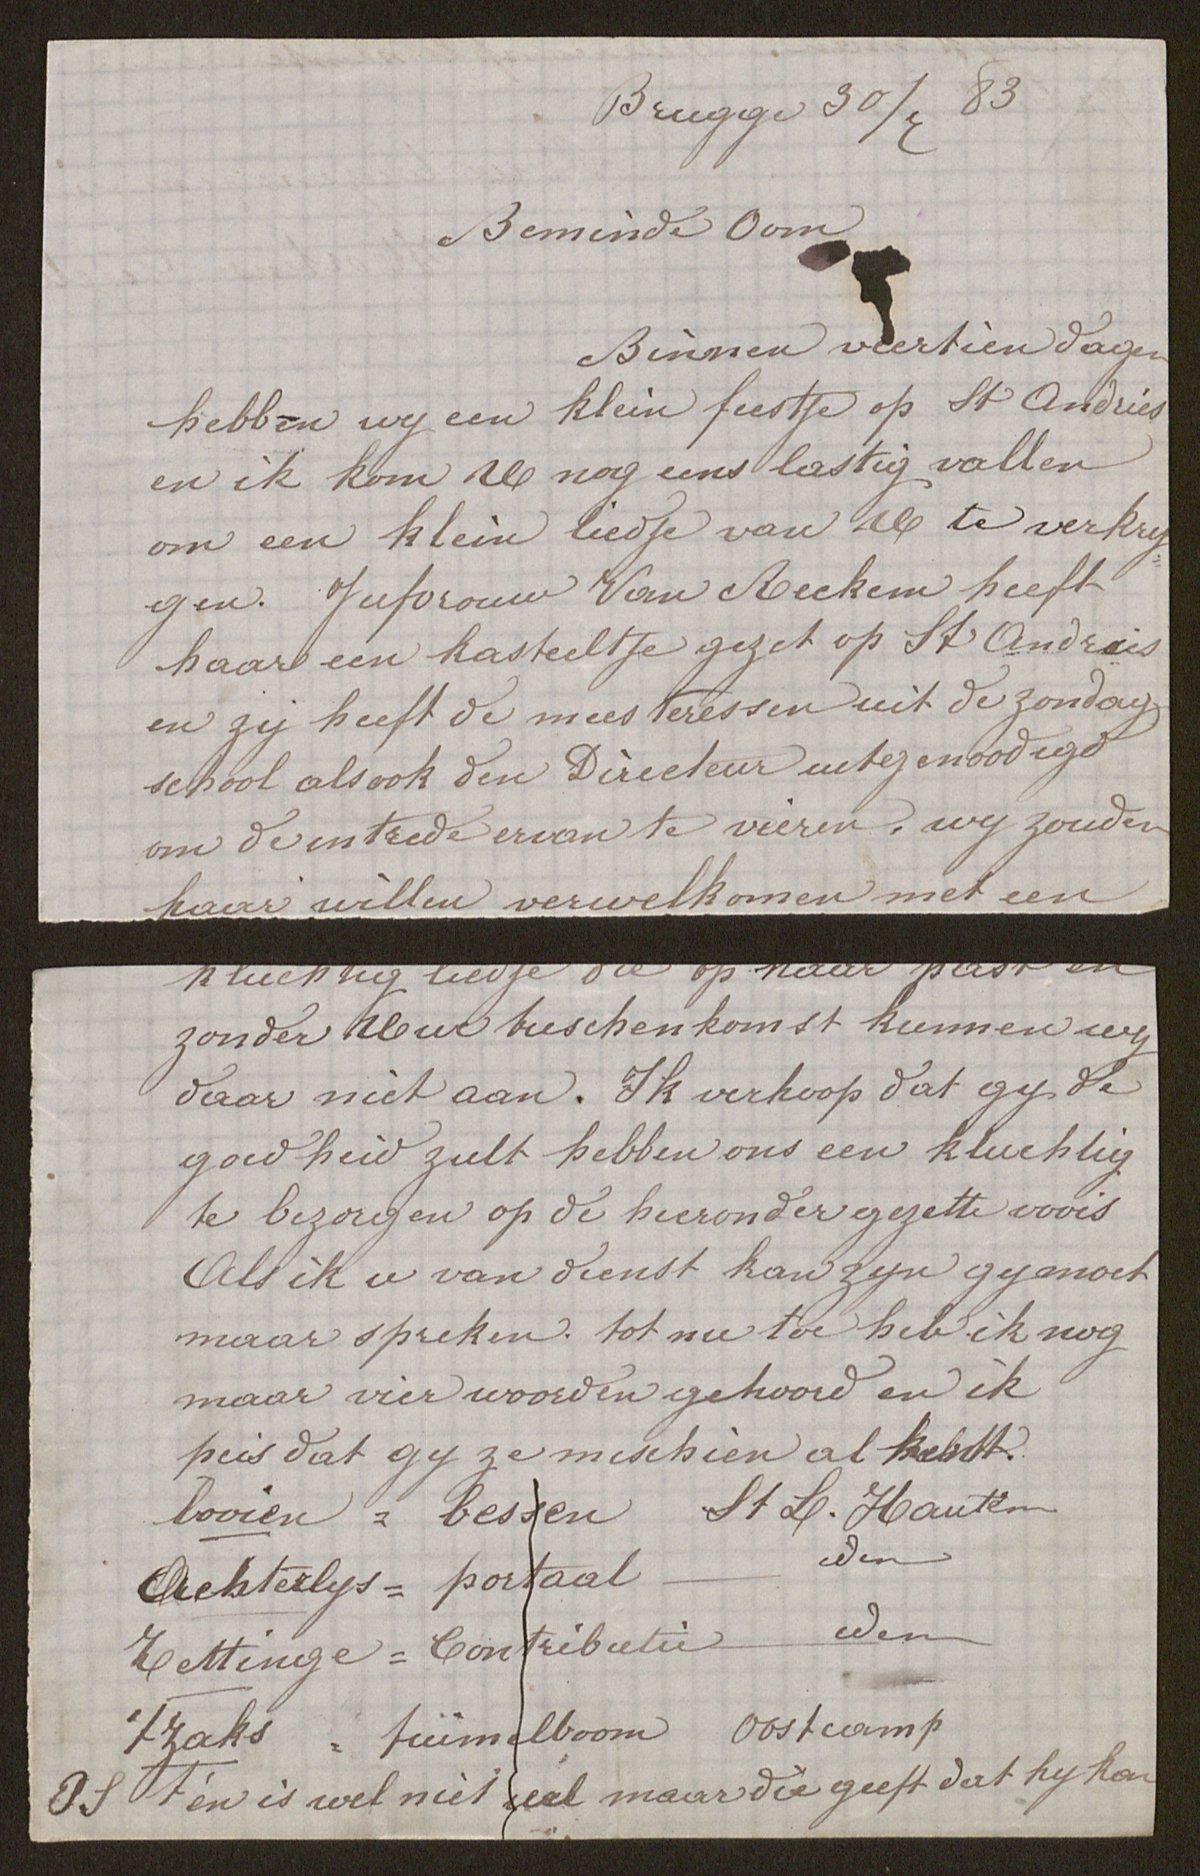 Brugge 30/7 83
Beminde Oom
Binnen veertien dagen
hebben wy een klein feestje op St Andries
en ik kom U nog eens lastig vallen
om een klein liedje van U te verkry=
gen. Jufvrouw Van Reckem heeft
haar een kasteeltje gezet op St Andries
en zij heeft de meesteressen uit de zondag
school alsook den Directeur uitgenoodigd
om de intrede ervan te vieren. wy zouden
haar willen verwelkomen met een
kluchtig liedje die op haar past en
zonder Uwe tusschenkomst kunnen wy
daar niet aan. Ik verhoop dat gy de
goedheid zult hebben ons een kluchtig
te bezorgen op de hieronder gezette voois
Als ik u van dienst kan zyn gy moet
maar spreken. tot nu toe heb ik nog
maar vier woorden gehoord en ik
peis dat gy ze meschien al kendt.
booien = bessen St L. Hautem
Achterlys = portaal — idem
Zettinge = Contributie — idem
'tzaks = tuimelboom Oostcamp
PS t'en is wel niet veel maar die geeft dat hy kan